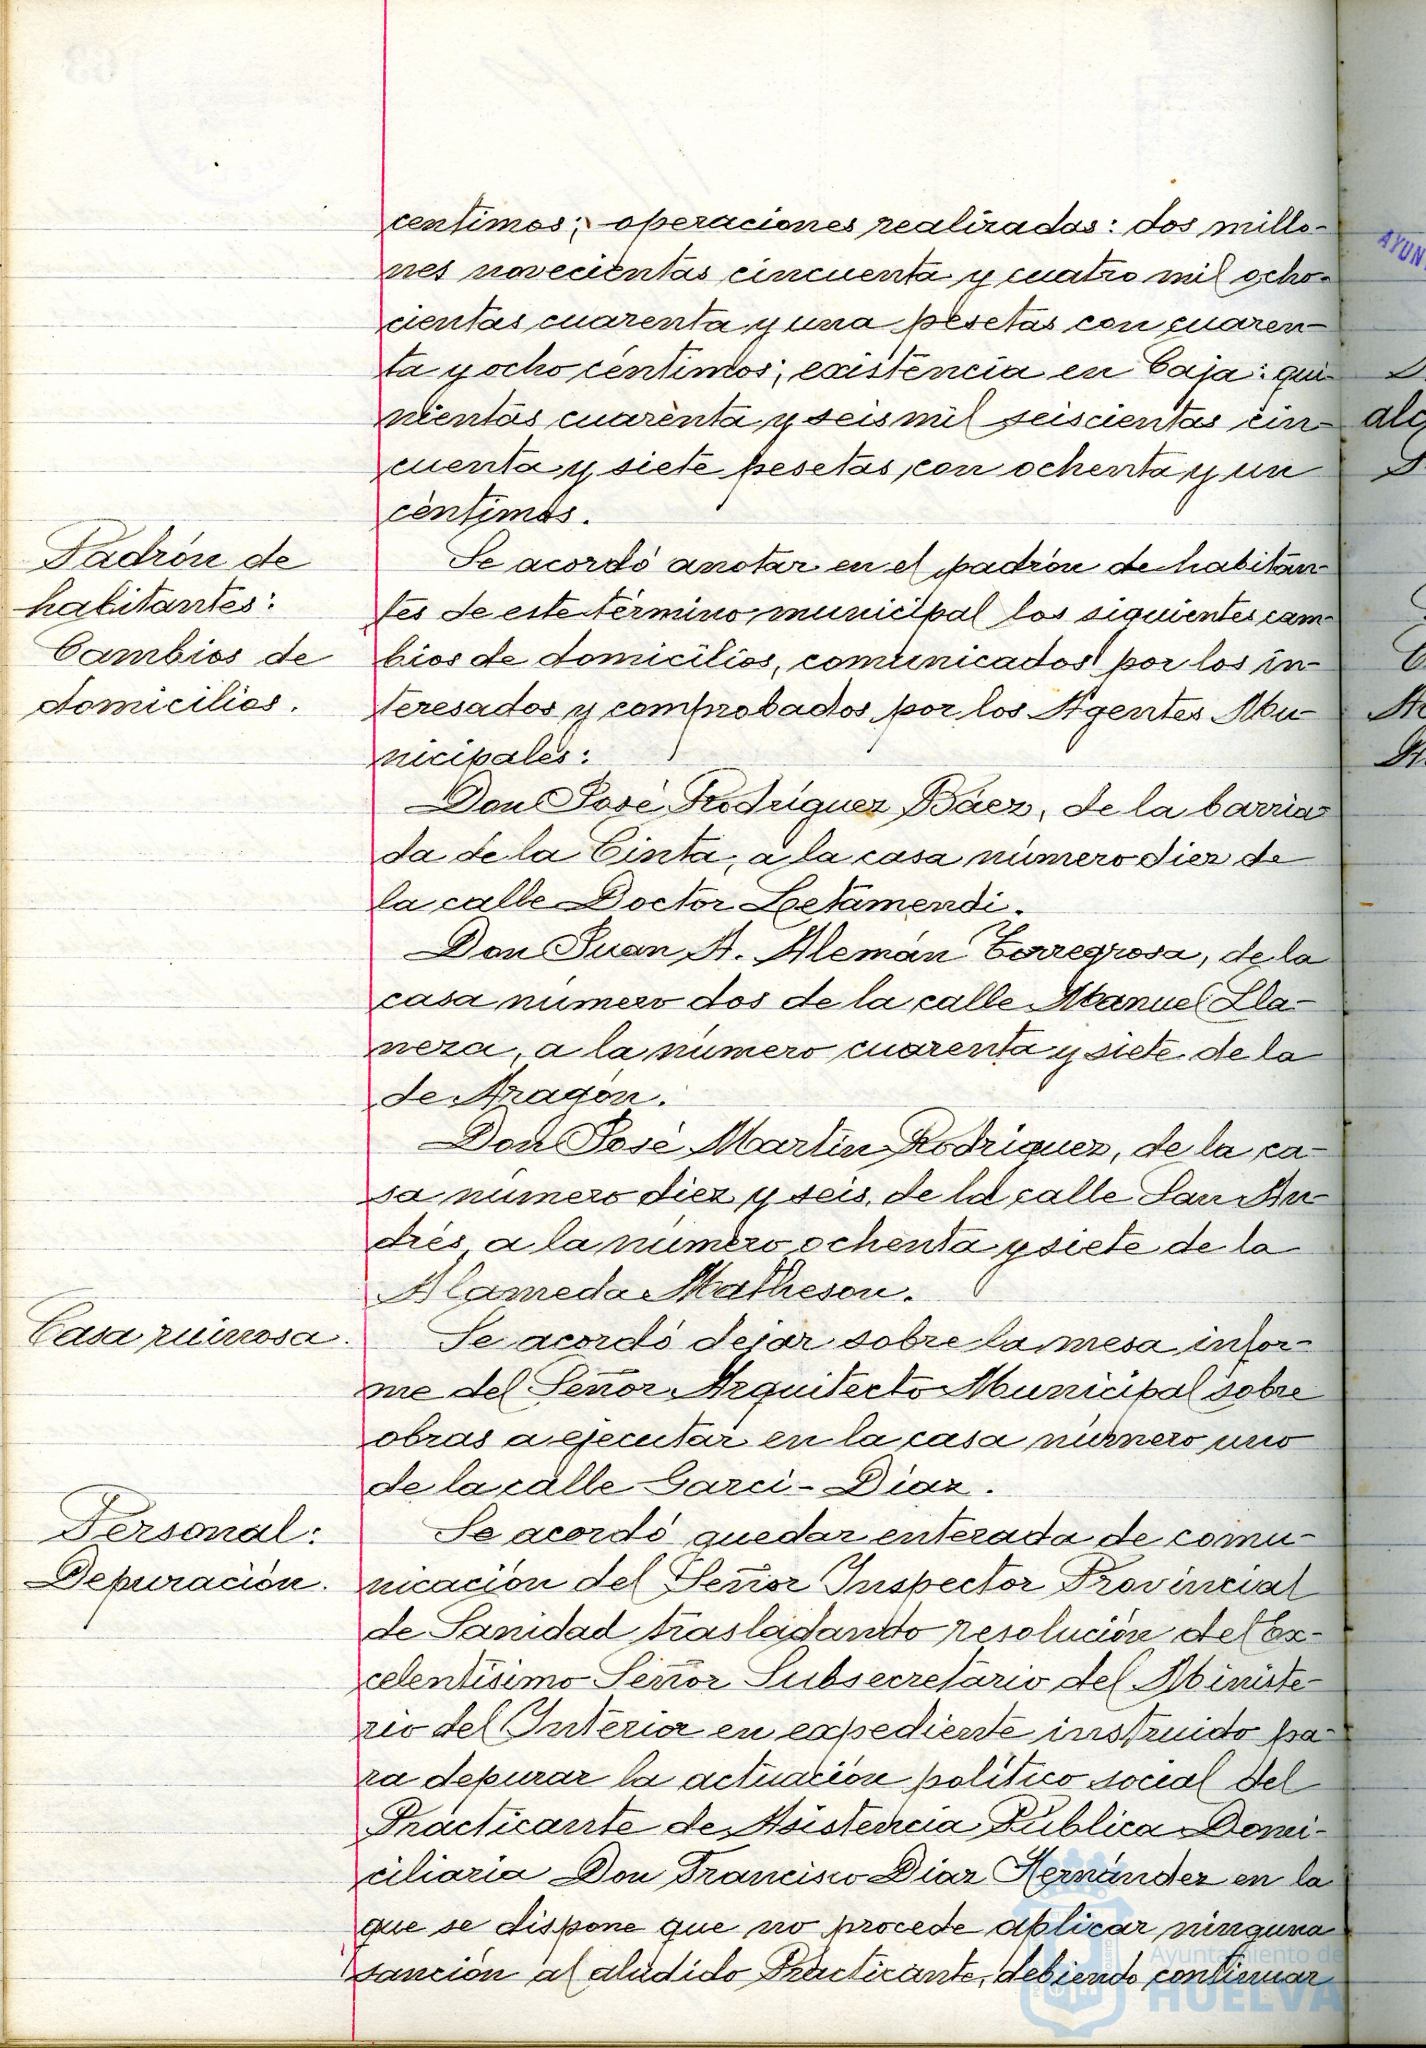 centimos; operaciones realizadas: dos millo-
nes novecientas cincuenta y cuatro mil ocho-
cientas cuarenta y una pesetas con cuaren-
ta y ocho céntimos; existencia en Caja: qui-
nientas cuarenta y seis mil seiscientas cin-
cuenta y siete pesetas con ochenta y un
céntimos.
Padrón de
habitantes:
Cambios de
domicilios.
Se acordó anotar en el padrón de habitan-
tes de este término municipal los siguientes cam-
bios de domicilios, comunicados por los in-
teresados y comprobados por los Agentes Mu-
nicipales:
Don José Rodríguez Báez, de la barria-
da de la Cinta, a la casa número diez de
la calle Doctor Letamendi.
Don Juan A. Alemán Torregrosa, de la
casa número dos de la calle Manuel Lla-
neza, a la número cuarenta y siete de la
de Aragón.
Don José Martín Rodríguez, de la ca-
sa número diez y seis, de la calle San An-
drés, a la número ochenta y siete de la
Alameda Matheson.
Casa ruinosa.
Se acordó dejar sobre la mesa infor-
me del Señor Arquitecto Municipal sobre
obras a ejecutar en la casa número uno
de la calle Garci-Díaz.
Personal:
Depuración.
Se acordó quedar enterada de comu-
nicación del Señor Inspector Provincial
de Sanidad trasladando resolución del Ex-
celentísimo Señor Subsecretario del Ministe-
rio del Interior en expediente instruido pa-
ra depurar la actuación político social del
Practicante de Asistencia Pública Domi-
ciliaria Don Francisco Díaz Hernández en la
que se dispone que no procede aplicar ninguna
sanción al aludido Practicante, debiendo continuar
Ayuntamiento de
HUELVA
AYUN
alg